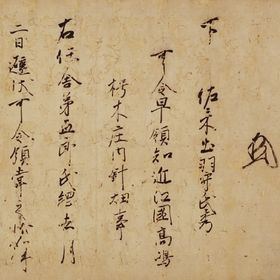 下 佐々木出羽守氏秀
可令早領知近江国高嶋
朽木庄内針畑事
右任舎弟五郎氏綱去月
二日譲状可令領掌之状如件